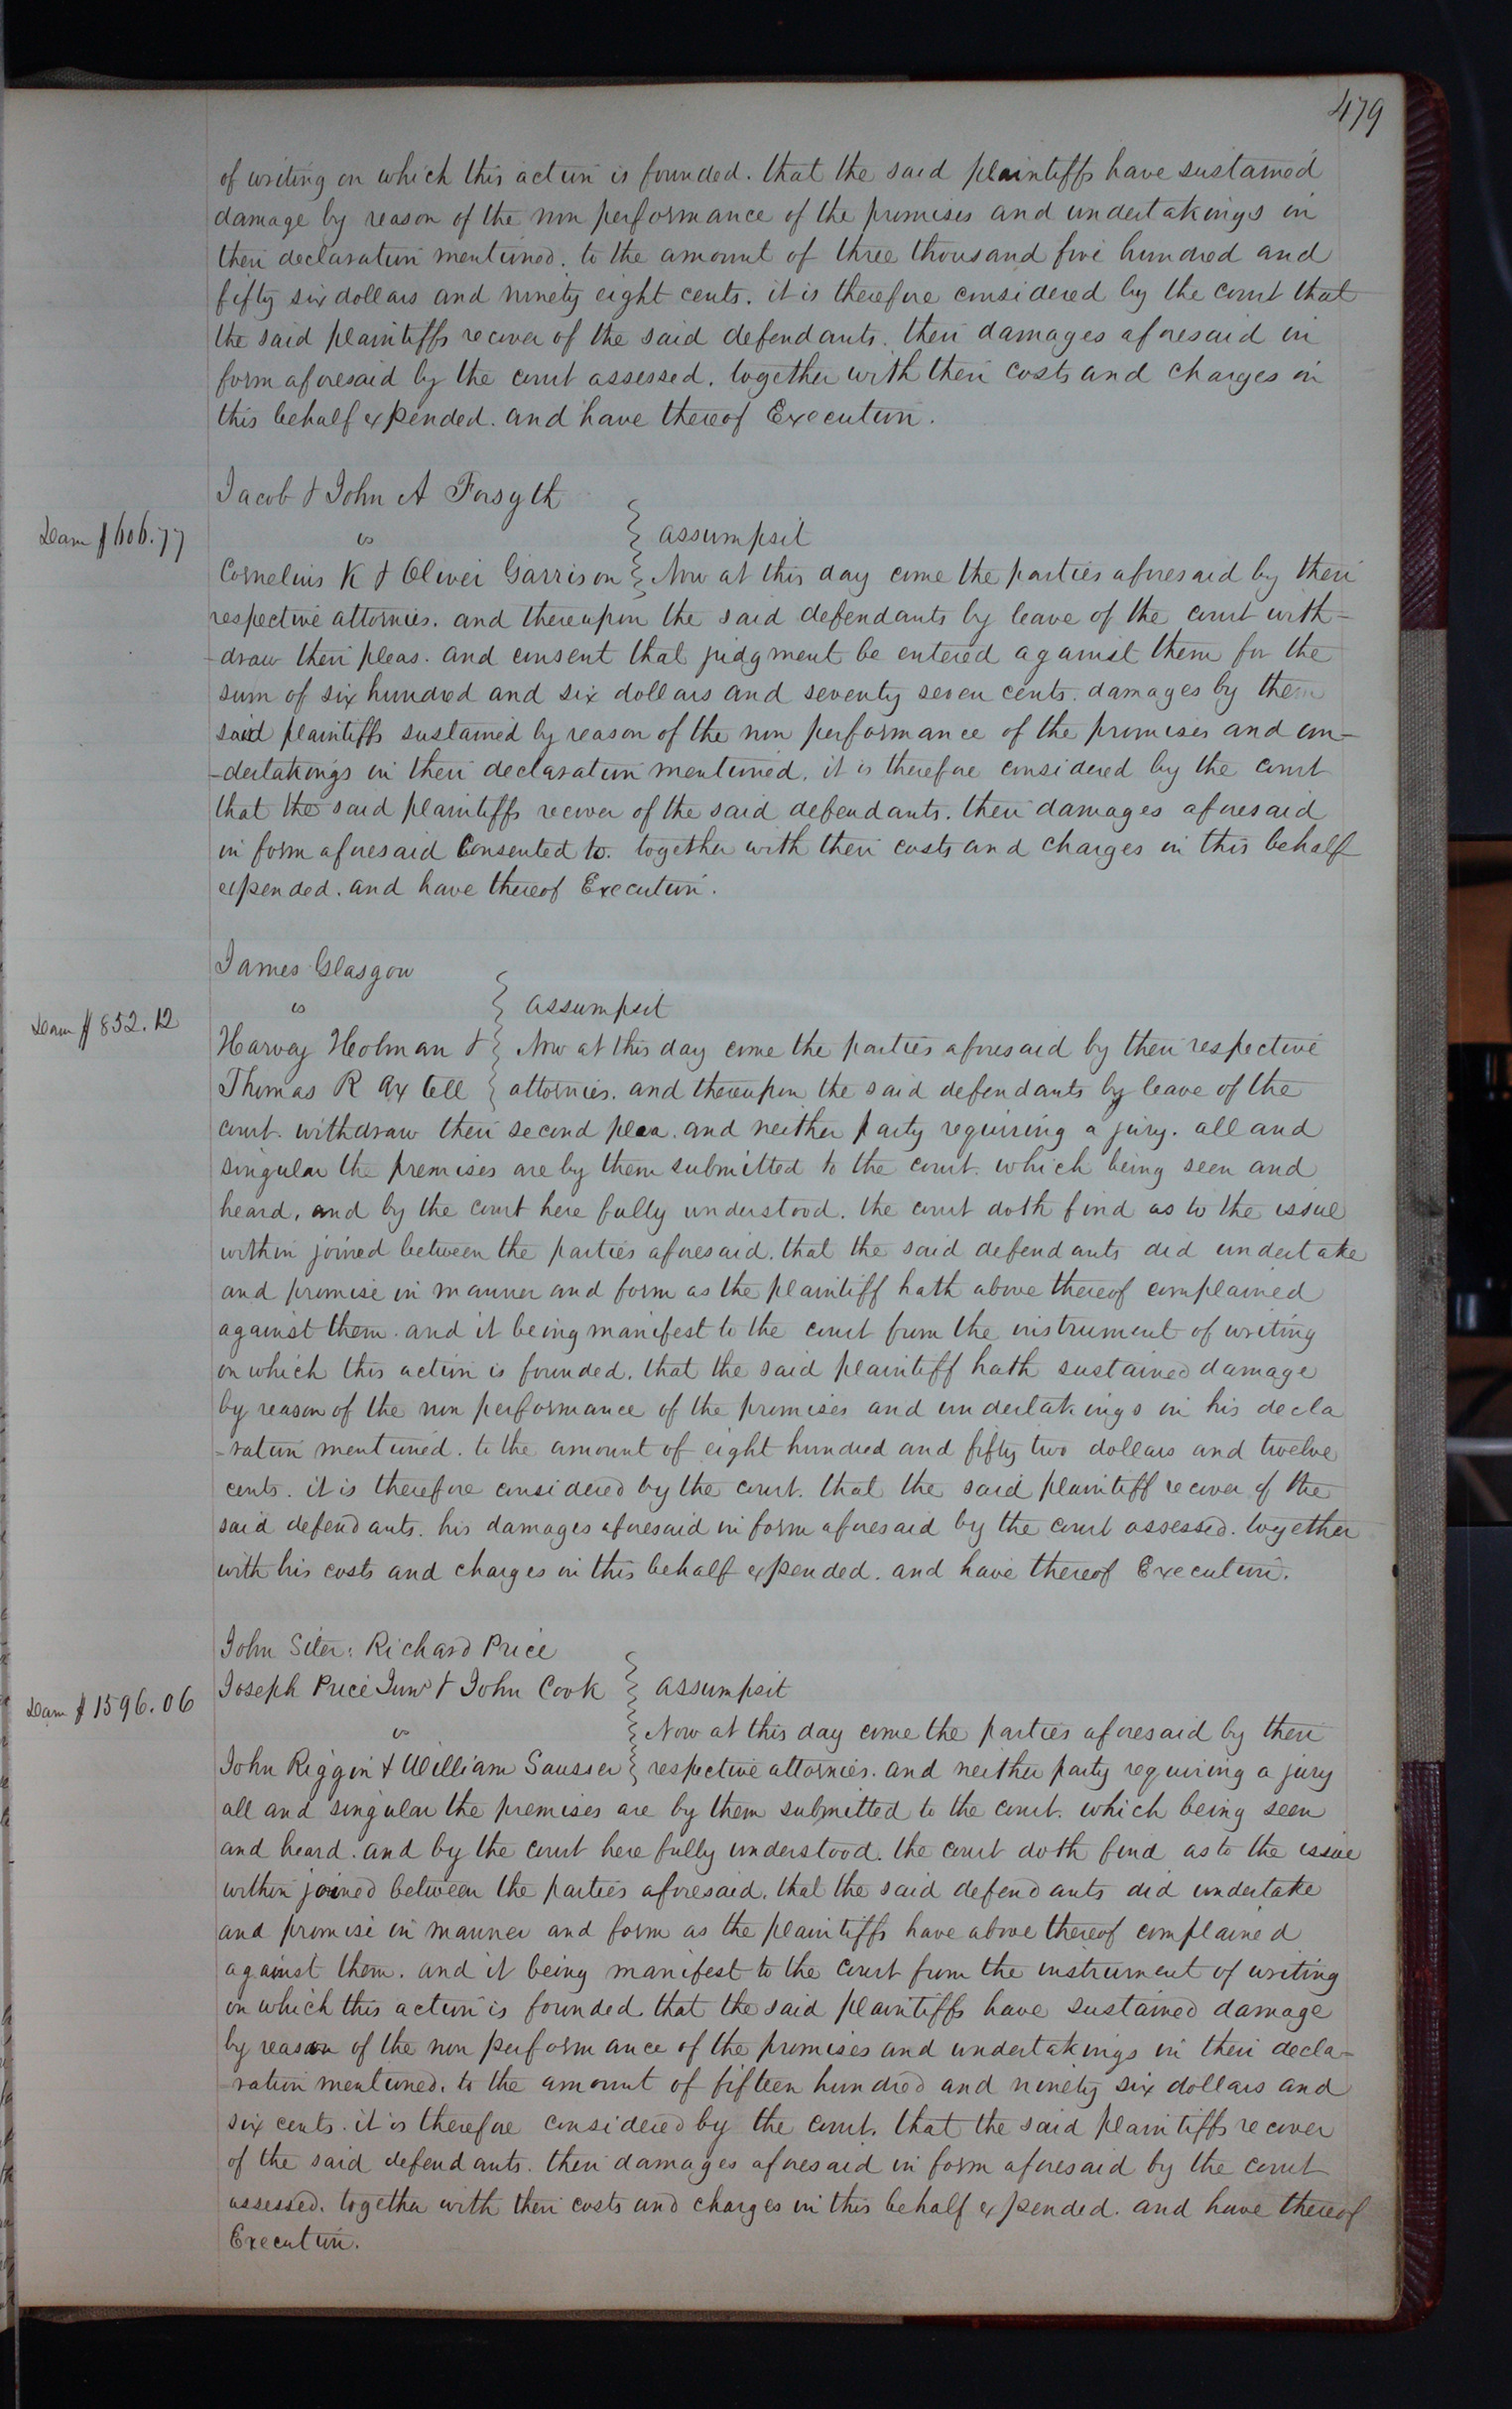 479
of writing on which this action is founded. that the said plaintiffs have sustained
damage by reason of the non performance of the promises and undertakings in
their declaration mentioned. to the amount of three thousand five hundred and
fifty six dollars and ninety eight cents. it is therefore considered by the court that
the said plaintiffs recover of the said defendants. their damages aforesaid in
form aforesaid by the court assessed. together with their costs and charges in
this behalf expended. and have thereof Execution.
Jacob & John A Forsyth
Dam $606.77
vs
assumpsit
Cornelius K & Oliver Garrison Now at this day come the parties aforesaid by their
respective attornies. and thereupon the said defendants by leave of the court with-
-draw their pleas. and consent that judgment be entered against them for the
sum of six hundred and six dollars and seventy seven cents. damages by them
said plaintiffs sustained by reason of the non performance of the promises and un-
-dertakings in their declaration mentioned. it is therefore considered by the court
that the said plaintiffs recover of the said defendants. their damages aforesaid
in form aforesaid Consented to. together with their costs and charges in this behalf
expended. and have thereof Execution.
James Glasgow
Dam $852.12
vs
assumpsit
Harvey Holman & Now at this day come the parties aforesaid by their respective
Thomas R Axtell attornies. and thereupon the said defendants by leave of the
court. withdraw their second plea. and neither party requiring a jury. all and
singular the premises are by them submitted to the court. which being seen and
heard, and by the court here fully understood. the court doth find as to the issue
within joined between the parties aforesaid. that the said defendants did undertake
and promise in manner and form as the plaintiff hath above thereof complained
against them. and it being manifest to the court from the instrument of writing
on which this action is founded. that the said plaintiff hath sustained damage
by reason of the non performance of the promises and undertakings in his decla
-ration mentioned. to the amount of eight hundred and fifty two dollars and twelve
cents. it is therefore considered by the court. that the said plaintiff recover of the
said defendants. his damages aforesaid in form aforesaid by the court assessed. together
with his costs and charges in this behalf expended. and have thereof Execution.
John Siter: Richard Price
Dam $1596.06
Joseph Price Junr & John Cook assumpsit
vs
Now at this day come the parties aforesaid by their
John Riggin & William Sausser respective attornies. and neither party requiring a jury
all and singular the premises are by them submitted to the court. which being seen
and heard. and by the court here fully understood. the court doth find as to the issue
within joined between the parties aforesaid. that the said defendants did undertake
and promise in manner and form as the plaintiffs have above thereof complained
against them. and it being manifest to the court from the instrument of writing
on which this action is founded that the said plaintiffs have sustained damage
by reason of the non performance of the promises and undertakings in their decla-
-ration mentioned. to the amount of fifteen hundred and ninety six dollars and
six cents. it is therefore considered by the court. that the said plaintiffs recover
of the said defendants. their damages aforesaid in form aforesaid by the court
assessed. together with their costs and charges in this behalf expended. and have thereof
Execution.